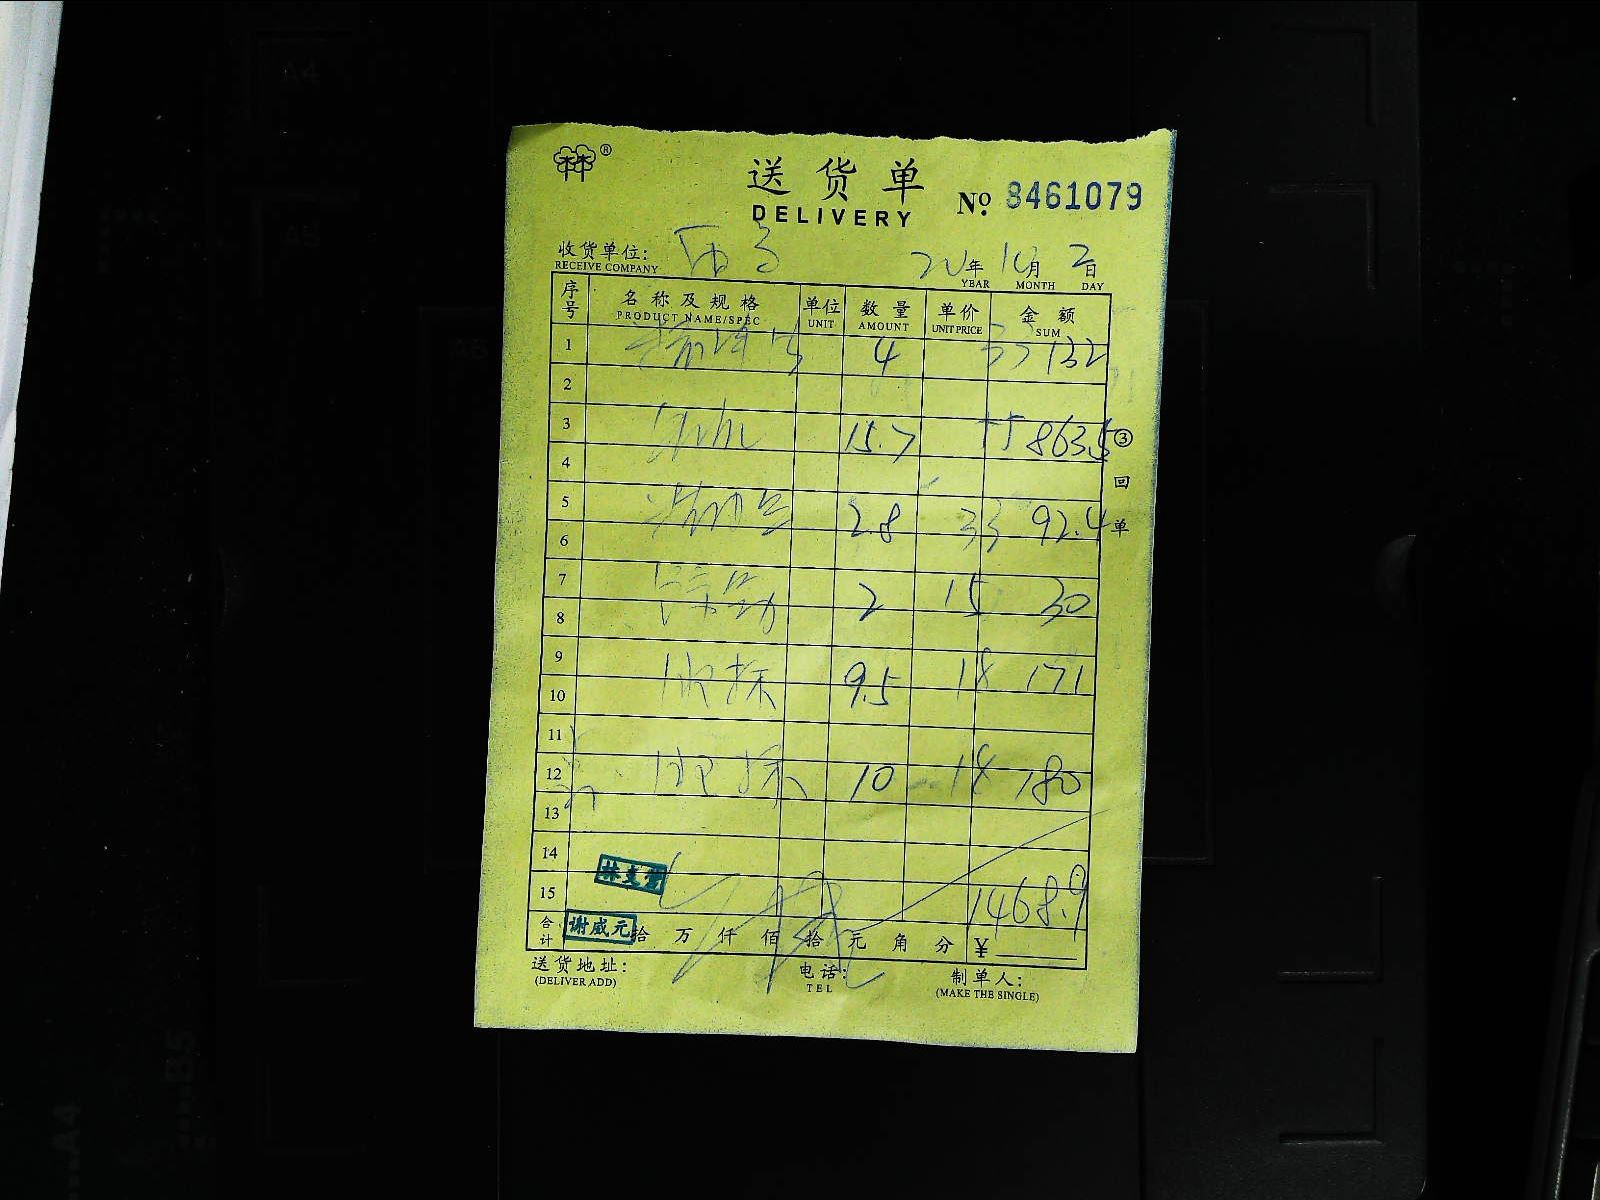 林®
送货单
DELIVERY
No. 8461079
收货单位:
RECEIVE COMPANY
年 10月 2日
YEAR MONTH DAY
序号 名称及规格 单位 数量 单价 金额
PRODUCT NAME/SPEC UNIT AMOUNT UNIT PRICE SUM
1 4 33 132
2
3 15.7 55 863.5
4
5 2.8 33 92.4
6
7 2 15 30
8
9 9.5 18 171
10
11
12 10 18 180
13
14 林支营
15 1468.9
合计 谢威元 拾 万 仟 佰 拾 元 角 分 ¥
送货地址: 电话: 制单人:
(DELIVER ADD) TEL (MAKE THE SINGLE)
③回单
A4
A5
B5
A4